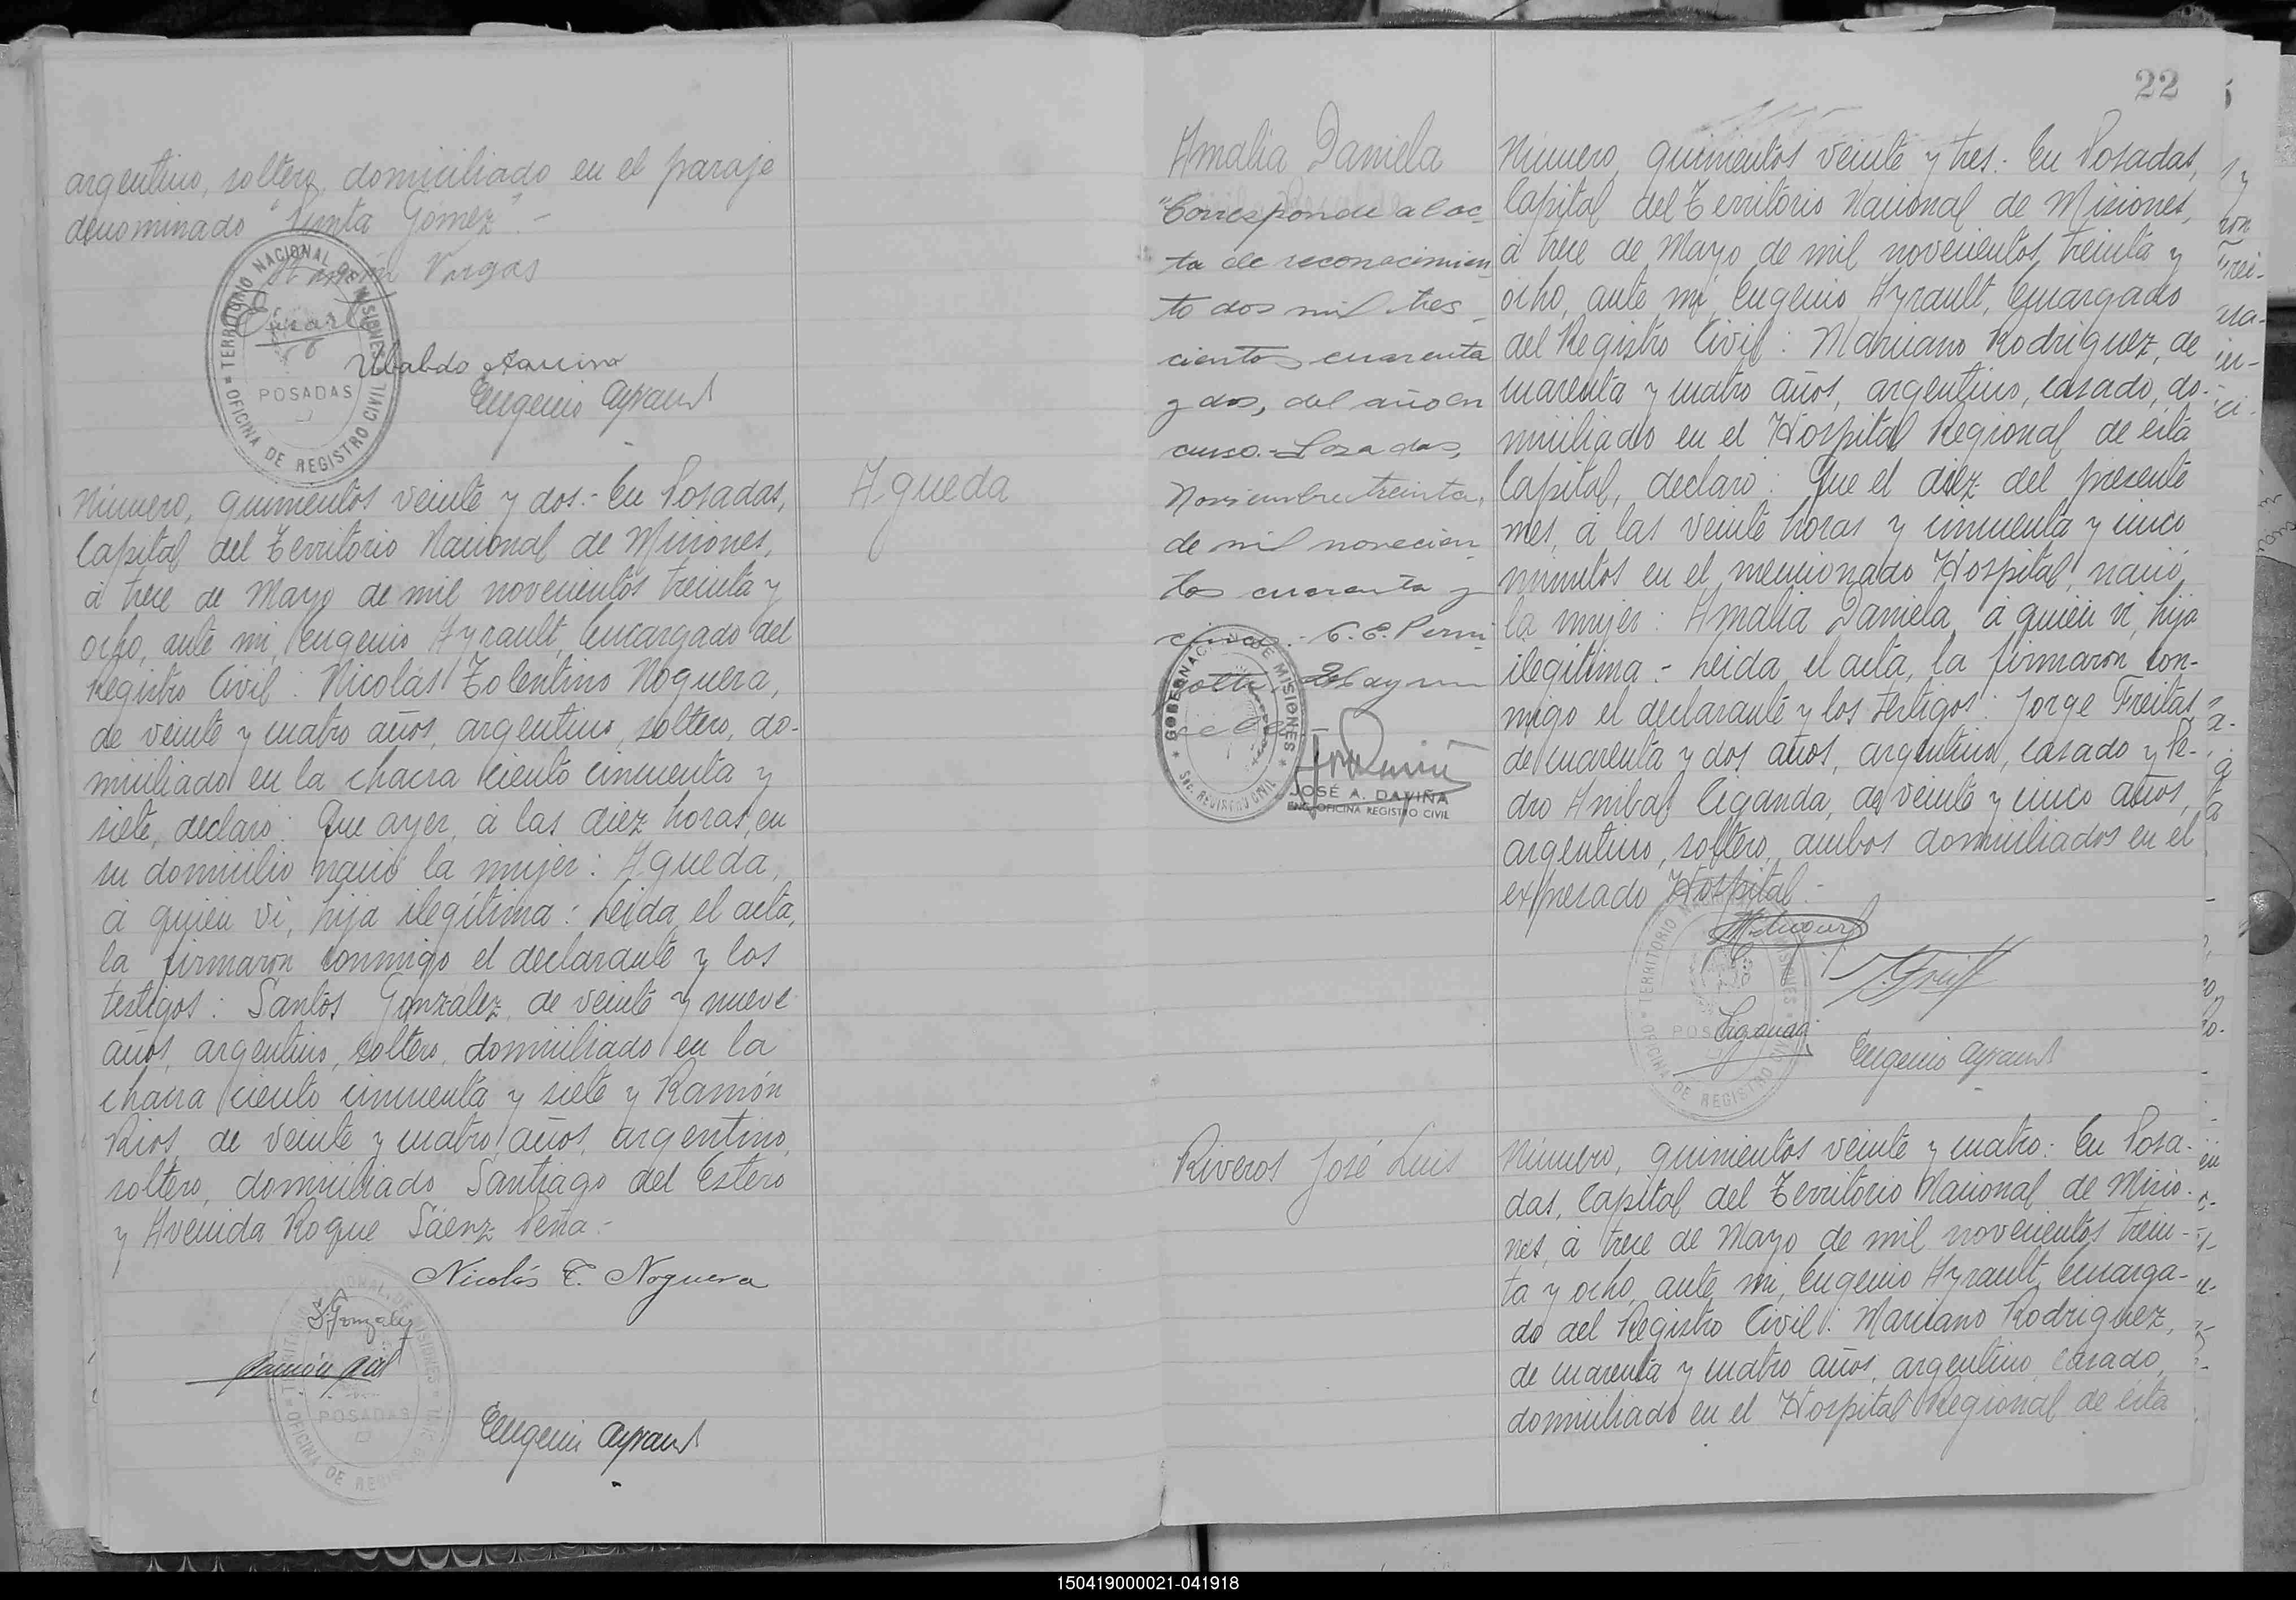 argentino, soltero, domiciliado en el paraje
denominado "Punta Gómez".-
Vargas
Ubaldo
Eugenio Ayrault
TERRITORIO NACIONAL DE MISIONES
POSADAS
OFICINA DE REGISTRO CIVIL
Agueda
Número, quinientos veinte y dos.- En Posadas,
Capital del Territorio Nacional de Misiones,
á trece de Mayo de mil novecientos treinta y
ocho, ante mi, Eugenio Ayrault, Encargado del
Registro Civil: Nicolás Tolentino Noguera,
de veinte y cuatro años, argentino, soltero, do-
miciliado en la chacra ciento cincuenta y
siete, declaró: Que ayer, á las diez horas, en
su domicilio nació la mujer: Agueda,
á quien vi, hija ilegítima: Leida el acta,
la firmaron conmigo el declarante y los
testigos: Santos González, de veinte y nueve
años, argentino, soltero, domiciliado en la
chacra ciento cincuenta y siete y Ramón
Rios, de veinte y cuatro años, argentino,
soltero, domiciliado Santiago del Estero
y Avenida Roque Sáenz Peña.-
Nicolás T. Noguera
S. González
Ramón
Eugenio Ayrault
POSADAS
22
Amalia Daniela
"Corresponde al ac-
ta de reconocimien
to dos mil tres-
cientos cuarenta
y dos, del año en
curso.- Posadas,
Noviembre treinta,
de mil novecien
tos cuarenta y
GOBERNACION DE MISIONES
REGISTRO CIVIL
JOSÉ A. DAVIÑA
ENC. OFICINA REGISTRO CIVIL
Número, quinientos veinte y tres.- En Posadas,
Capital del Territorio Nacional de Misiones,
á trece de Mayo de mil novecientos treinta y
ocho, ante mi, Eugenio Ayrault, Encargado
del Registro Civil: Marciano Rodriguez, de
cuarenta y cuatro años, argentino, casado, do-
miciliado en el Hospital Regional de ésta
Capital, declaró: Que el diez del presente
mes, á las veinte horas y cincuenta y cinco
minutos en el mencionado Hospital, nació
la mujer: Amalia Daniela, á quien vi, hija
ilegítima.- Leida el acta, la firmaron con-
migo el declarante y los testigos: Jorge Freitas
de cuarenta y dos años, argentino, casado y Pe-
dro Anibal Ciganda, de veinte y cinco años,
argentino, soltero, ambos domiciliados en el
expresado Hospital.-
Ciganda
Eugenio Ayrault
TERRITORIO NACIONAL DE MISIONES
POSADAS
OFICINA DE REGISTRO CIVIL
Riveros José Luis
Número, quinientos veinte y cuatro: En Posa-
das, Capital del Territorio Nacional de Misio-
nes, á trece de Mayo de mil novecientos trein-
ta y ocho, ante mi, Eugenio Ayrault, Encarga-
do del Registro Civil: Marciano Rodriguez,
de cuarenta y cuatro años, argentino, casado,
domiciliado en el Hospital Regional de ésta
150419000021-041918